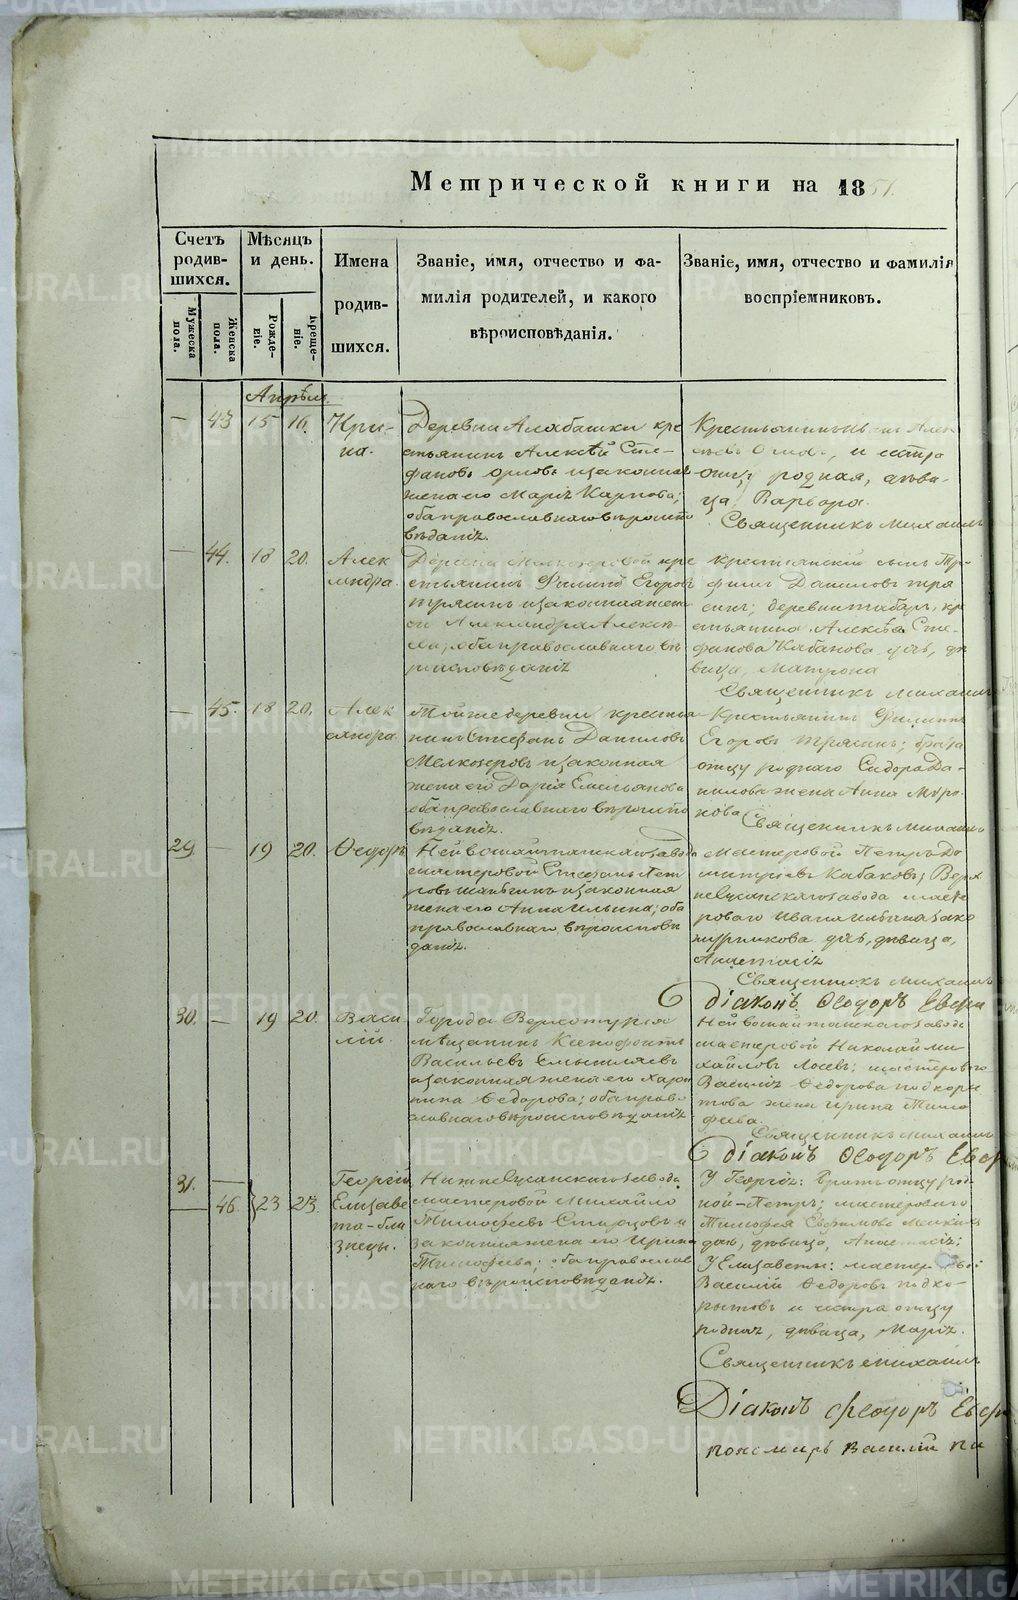 METRIKI.GASO-URAL.RU
Метрической книги на 1851.
Счетъ родив-шихся.
Мужеска пола.
Женска пола.
Мѣсяцъ и день.
Рожде-ніе.
Креще-ніе.
Имена
родив-
шихся.
Званіе, имя, отчество и фа-
милія родителей, и какого
вѣроисповѣданія.
Званіе, имя, отчество и фамилія
воспріемниковъ.
Апрѣль
— 43 15 16.
Деревни Алабашки кре
стьянинъ Алексѣй Сте-
фановъ Орловъ и законная
жена его Марія Карпова;
оба православнаго вѣроиспо
вѣданія.
и сестра
отцу родная, дѣви-
ца, Варвара.
Священникъ Михаилъ
— 44. 18 20.
Алек
сандра.
Деревни Мелкозеровой кре
стьянинъ Филипъ Егоровъ
Трясинъ и законная жена
его Александра Алексѣ-
ева; оба православнаго вѣ
роисповѣданія
Крестьянскій сынъ Тро-
фимъ Даниловъ Тря
синъ; деревни Табаръ, кр
стьянина Алексѣя Сте-
фанова Кабанова дочь, дѣ
вица, Матрона
Священникъ Михаилъ
— 45. 18 20.
Алек
сандра.
Той же деревни крестья
нинъ Стефанъ Даниловъ
Мелкозеровъ и законная
жена его Дарія Емельянова
оба православнаго вѣроиспо
вѣданія.
Крестьянинъ Филипъ
Егоровъ Трясинъ; брата
отцу роднаго Сидора Да-
нилова жена Анна Миро-
нова
Священникъ Михаилъ
29 — 19 20.
Ѳедоръ
Нейвошайтанскаго завода
мастеровой Стефанъ Пет
ровъ и законная
жена его Анна Ильина; оба
православнаго вѣроисповѣ
данія.
Мастеровой Петръ Ди
митріевъ Кабаковъ; Верх
несусанскаго завода масте
роваго Ивана
дочь, дѣвица,
Анастасія
Священникъ Михаилъ
Діаконъ Ѳеодоръ
30. — 19 20.
Васи
лій.
Города Верхотурья
мѣщанинъ Ксенофонтъ
Васильевъ Смышляевъ
и законная жена его Харит
тина Ѳедорова; оба право
славнаго вѣроисповѣданія
Нейвошайтанскаго завода
мастеровой Николай Ми
хайловъ Лосевъ; мастероваго
Василія Ѳедорова Подкоры
това жена Ирина Тимо
феева.
Священникъ Михаилъ
Діаконъ Ѳеодоръ
31. —
— 46. 23 23.
Георгій
Елизаве
та-бли
знецы.
Нижнесусанскаго завода
мастеровой Михайло
Тимофеевъ Старцовъ и
законная жена его Ирина
Тимофеева; оба православ
наго вѣроисповѣданія.
У Георгія: братъ отцу род
ной-Петръ; мастероваго
Тимофея Евфимова
дочь, дѣвица, Анастасія;
У Елизаветы: мастеровой
Василій Ѳедоровъ Подко-
рытовъ и сестра отцу
родная, дѣвица, Марія.
Священникъ Михаилъ
Діаконъ Ѳеодоръ
пономарь Василій